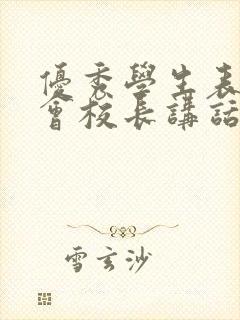 優秀學生表
會校長講話
雪玄沙